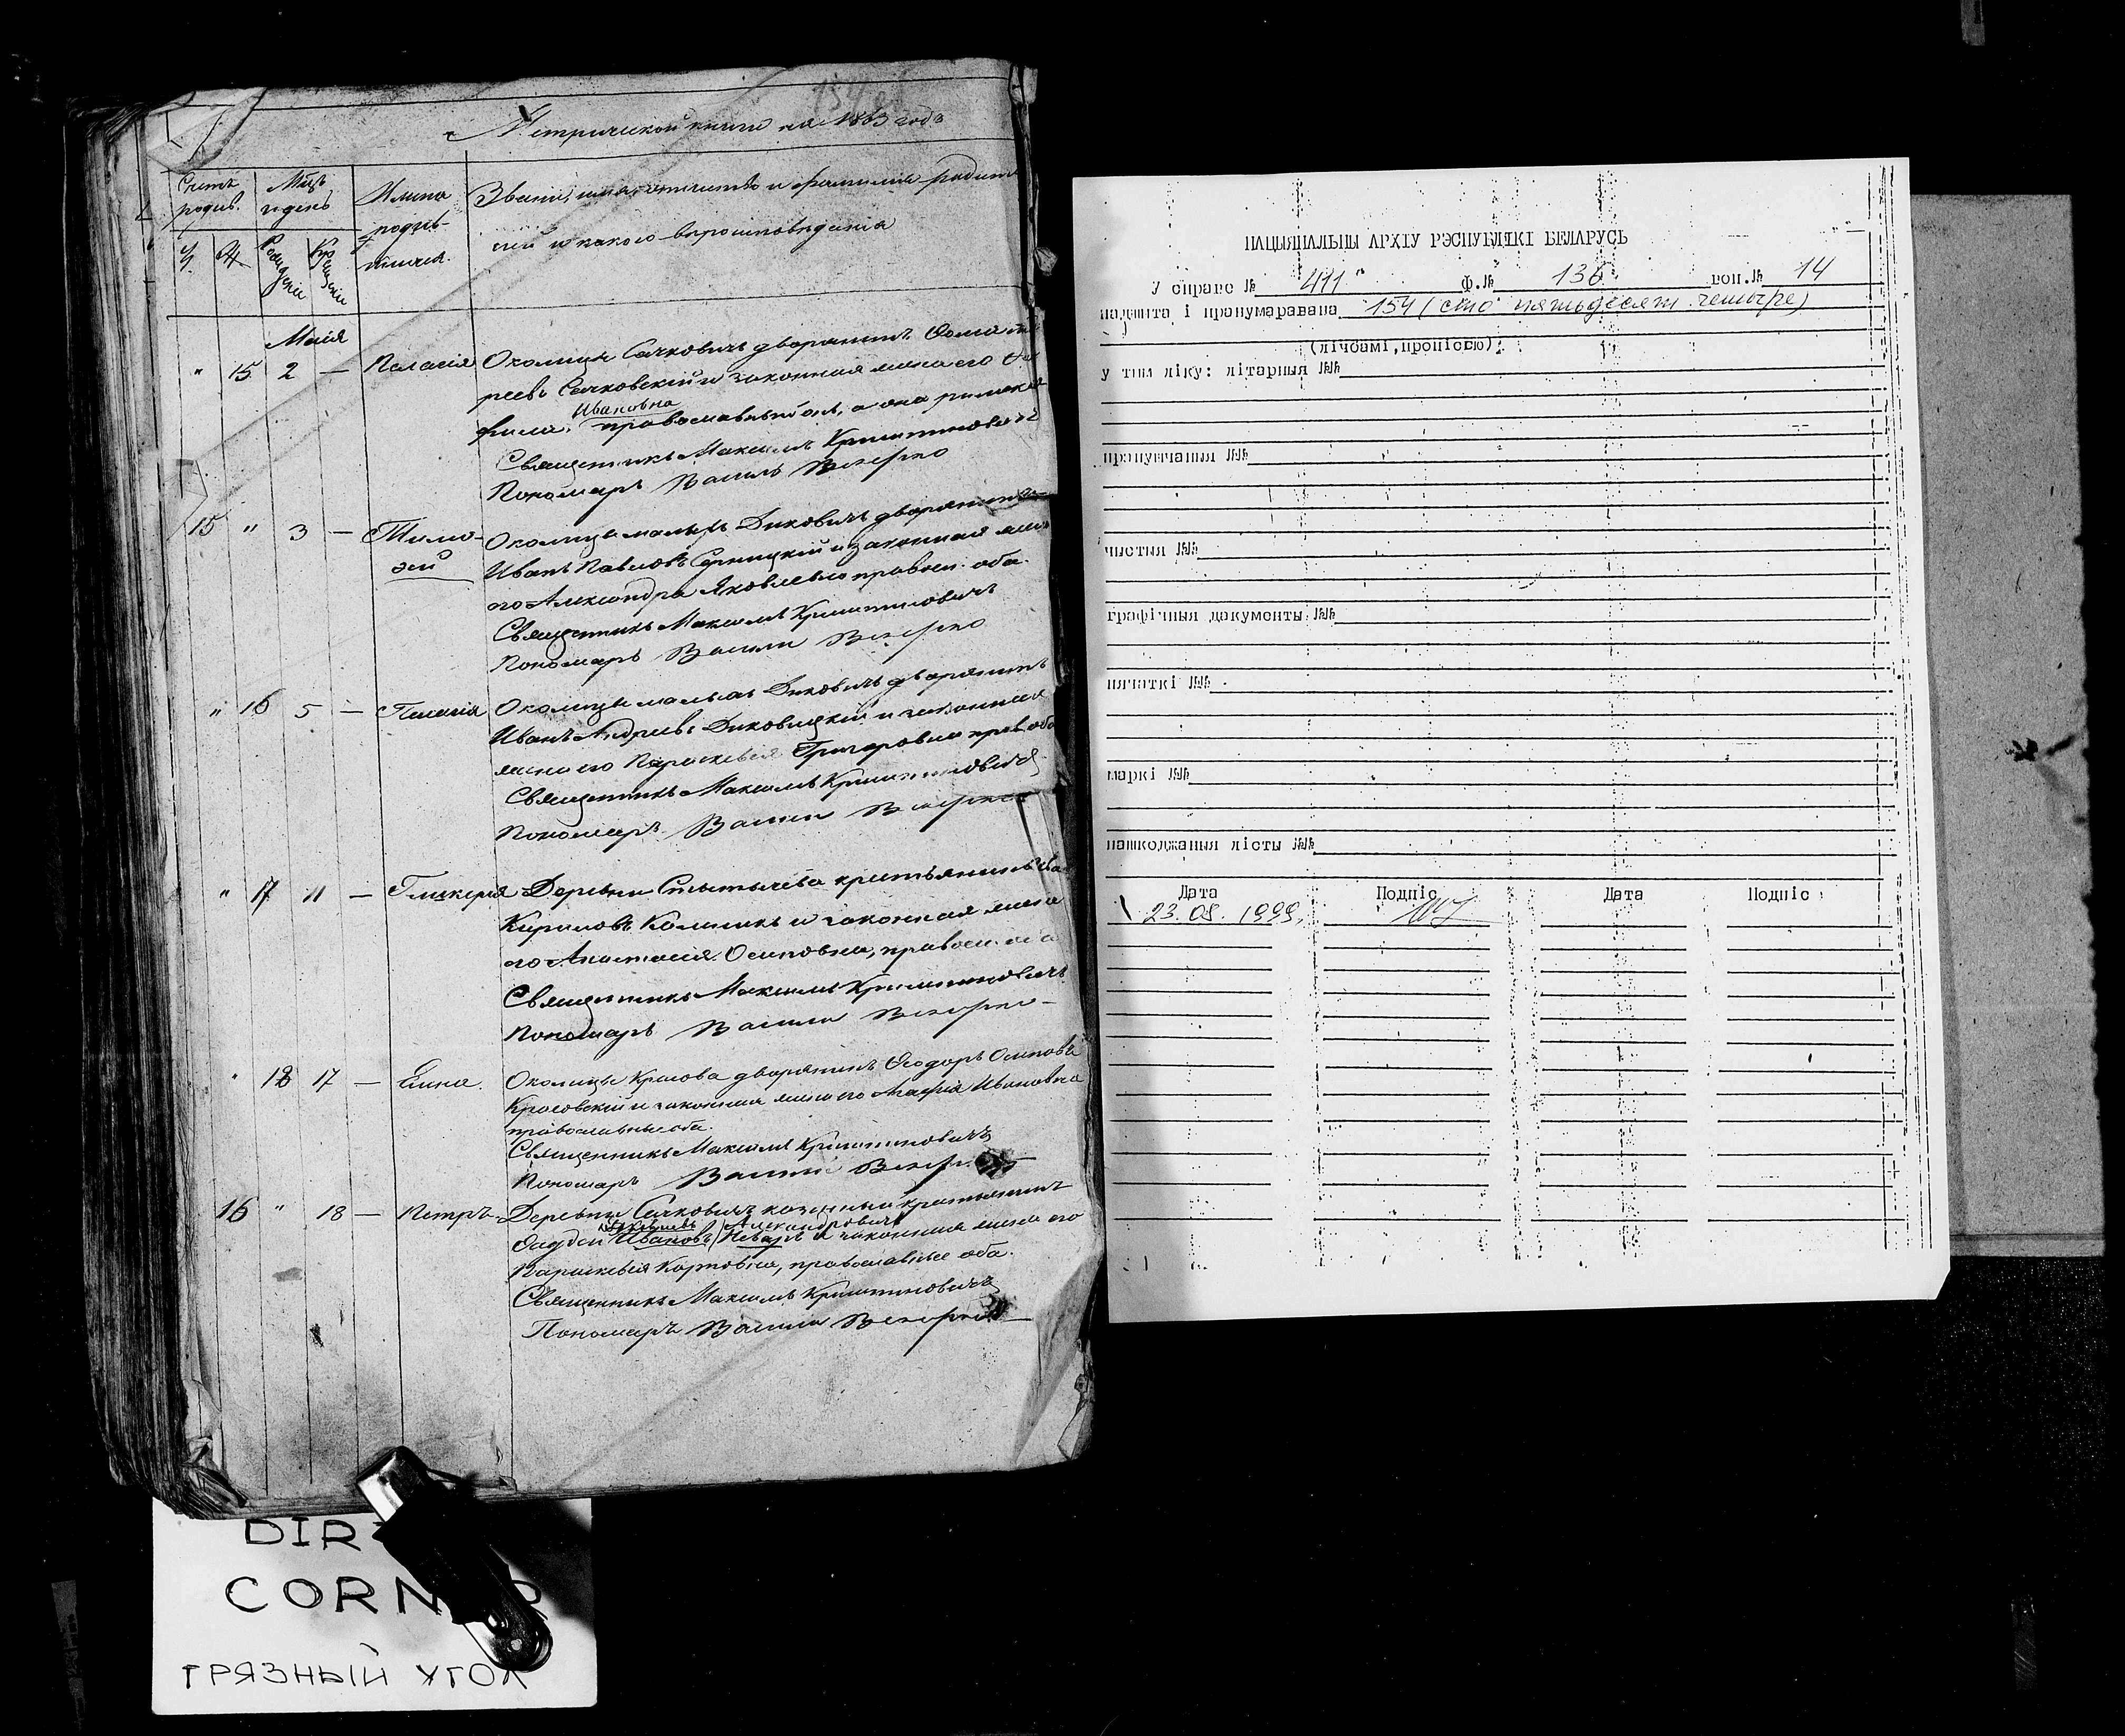 154
Метрической книги на 1863 годъ
Счетъ родив.
Мѣсъ и день
Имена родив-шихся.
Званіе, имя, отчество и фамилия родите
лей и какого вероисповеданія
М. Ж. Рожденія Крещенія
Маія
" 15 2 — Пелагія Околицы Сачковичь дворянинъ Фома
реевъ Сачковскій и законная жена его
Ивановна
фила, православный онъ, а она римской
Священникъ Максимъ Криштиновичъ
Пономарь Василь
15 " 3 — Тимо- Околицы малыхъ Диковичъ дворянинъ
фей Иванъ Павловъ Серницкій и законная жена
его Александра Яковлевна правосл. оба.
Священникъ Максимъ Криштиновичъ
Пономарь Василь
" 16 5 — Пелагія Околицы малыхъ Диковичъ дворянинъ
Иванъ Андреевъ Диковицкій и законная
жена его Параскевия Григоровна прав. оба
Священникъ Максимъ Криштиновичъ
Пономарь Василь
" 17 11 — Гликерія Деревни Стытычева крестьянинъ
Кириловъ Колникъ и законная жена
его Анастасія Осиповна, правосл. оба
Священникъ Максимъ Криштиновичъ
Пономарь Василь
" 18 17 — Елена. Околицы Красова дворянинъ Ѳеодоръ Осиповъ
Красовскій и законная жена его Марія Ивановна
православные оба.
Священникъ Максимъ Криштиновичъ
Пономарь Василь
16 " 18 — Петръ Деревни Сачковичъ казенный крестьянинъ
Яковлевъ Александровичъ
Фаддей Ивановъ Неваръ и законная жена его
Параскевія Карповна, православные оба.
Священникъ Максимъ Криштиновичъ
Пономарь Василь
DIR
CORN R
ГРЯЗНЫЙ УГОЛ
НАЦЫЯНАЛЬНЫ АРХІЎ РЭСПУБЛІКІ БЕЛАРУСЬ
У справе № 411 Ф.№ 136 воп.№ 14
падшыта і пранумаравана 154 (сто пятьдесят четыре)
(лічбамі,пропіссю)
у тым ліку: літарныя №№
прапушчаныя №№
чыстыя №№
графічныя дакументы №№
пячаткі №№
маркі №№
пашкоджаныя лісты №№
Дата Подпіс Дата Подпіс
23.08.1999